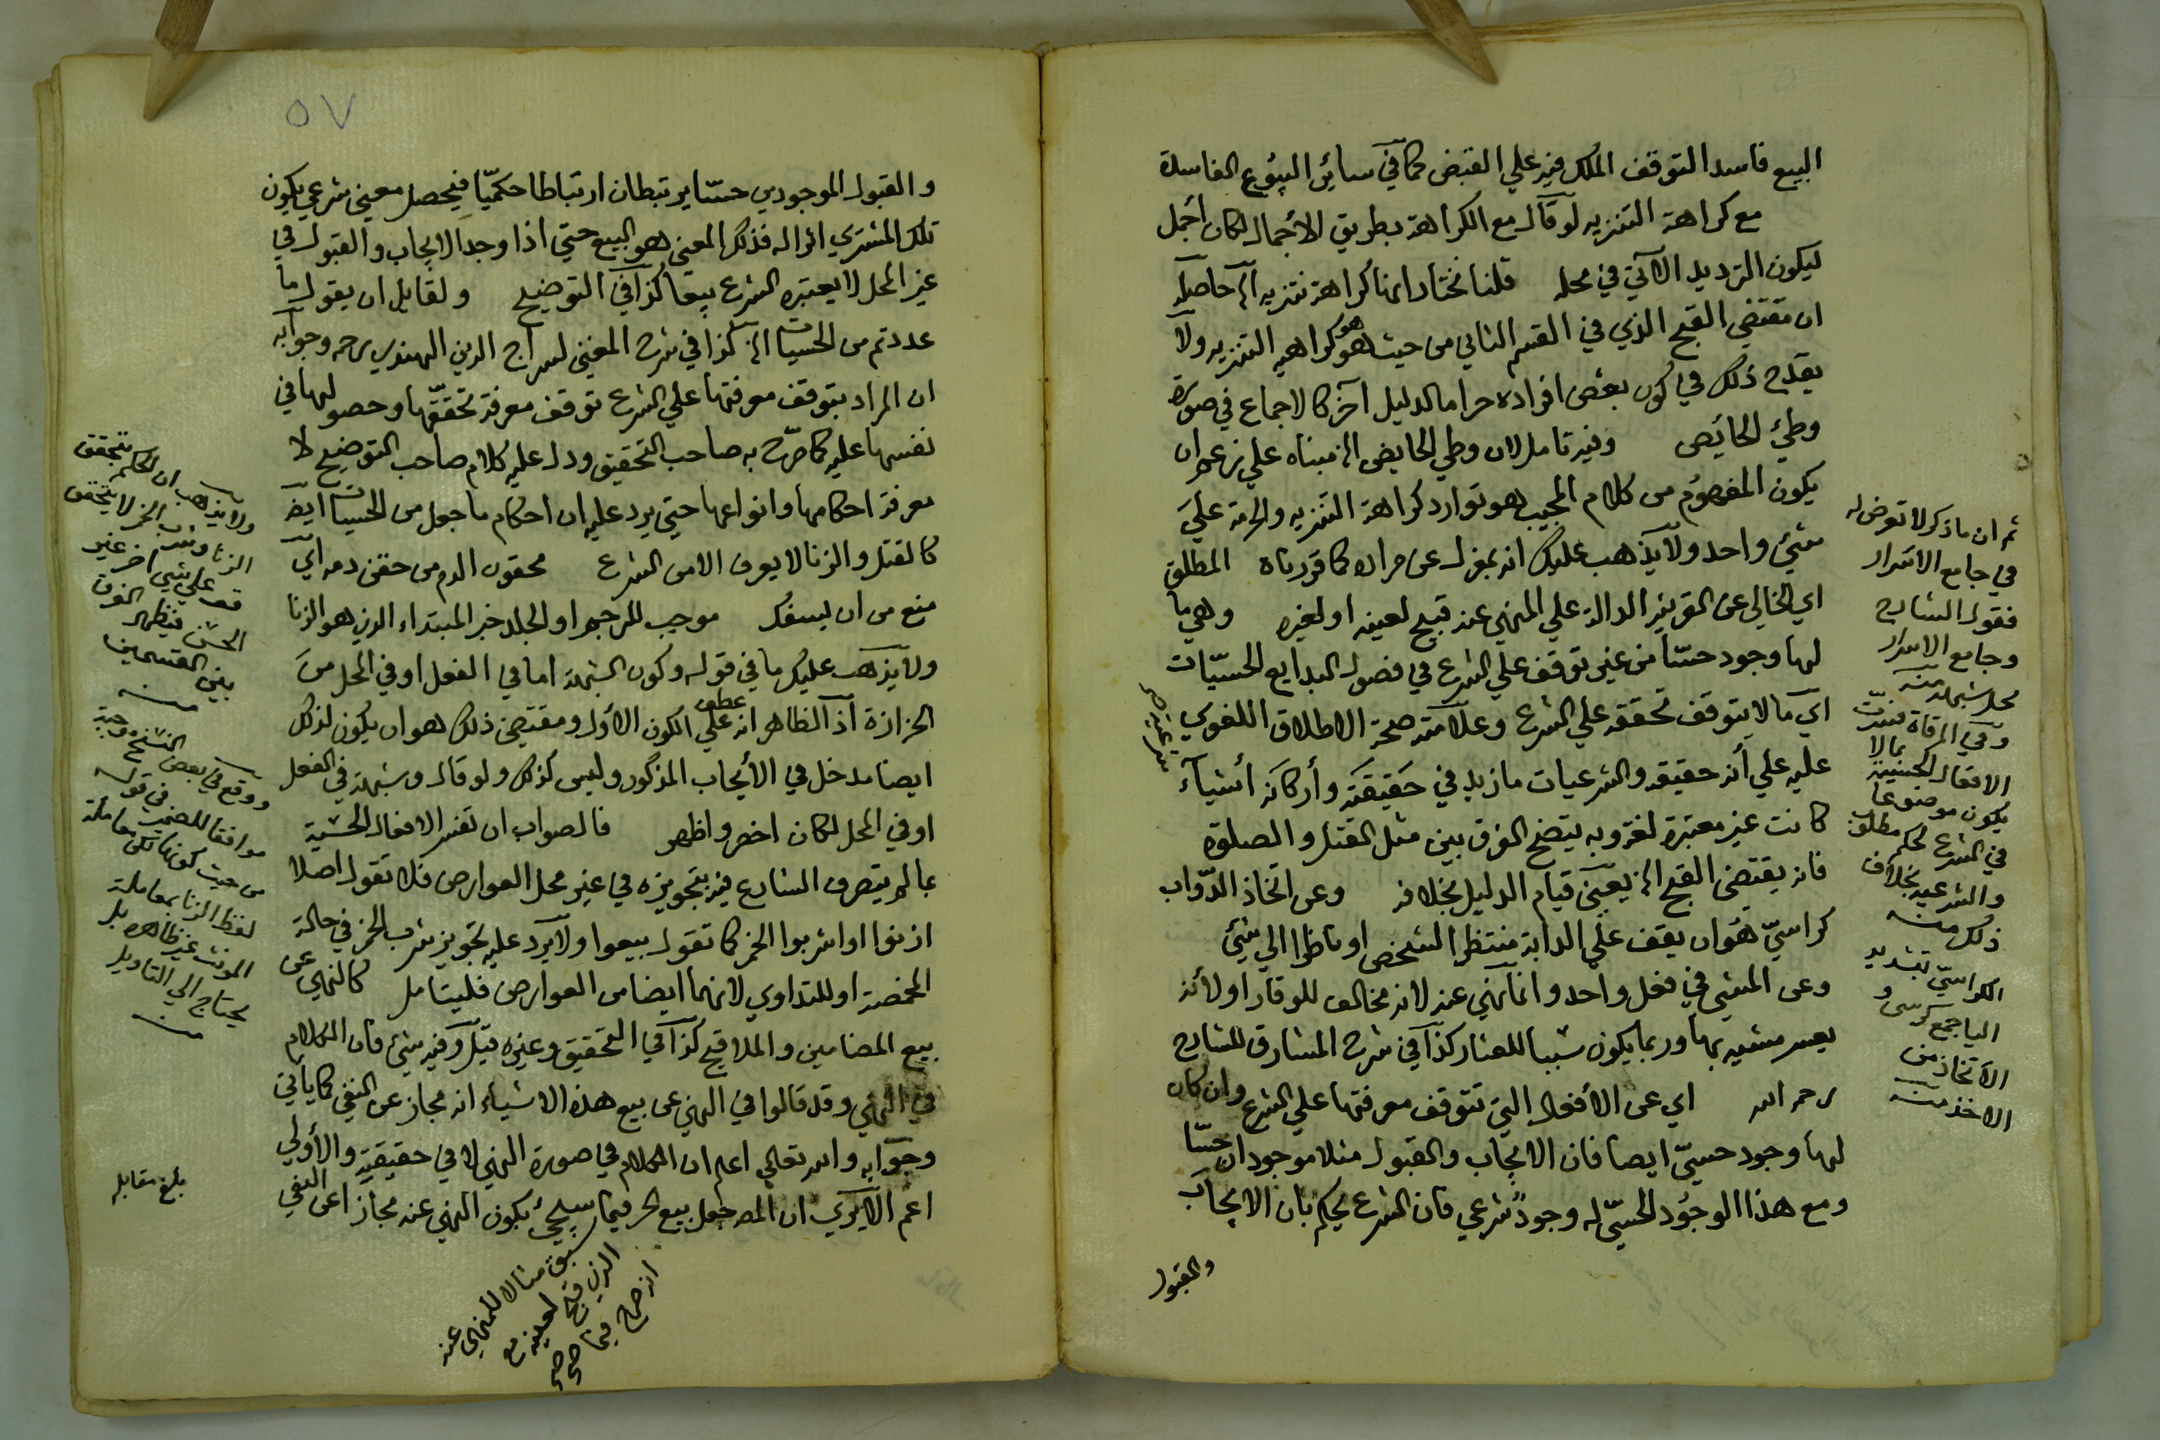 البيع فاسد التوقف الملك فيه علي القبض كما في سائر البيوع الفاسدة
مع كراهة التنزيه لو قال مع الكراهة بطريق الاجمال لكان اجمل
ليكون الترديد الآتي في محله قلنا نختار انها كراهة تنزيه الخ حاصله
ان مقتضي القبح الذي في القسم الثاني من حيث هو هو كراهية التنزيه ولا
يقدح ذلك في كون بعض افراده حراما لدليل آخر كالاجماع في صورة
وطئ الحائض وفيه تامل لان وطي الحايض الخ مبناه علي زعم ان
يكون المفهوم من كلام المجيب هو توارد كراهة التنزيه والحرمة علي
شئ واحد ولا يذهب عليك انه بمعزل عن مراده كما قررناه المطلق
اي الخالي عن القرينة الدالة علي المنهي عنه قبيح لعينه او لغيره وهي ما
لها وجود حسّا من غير توقف علي الشرع في فصول البدايع الحسيّات
اي ما لا يتوقف تحققه علي الشرع وعلامته صحة الاطلاق اللغوي
عليه علي أنه حقيقة والشرعيات ما زيد في حقيقته وأركانه أشيآء
كانت غير معتبرة لغة وبه يتضح الفرق بين مثل القتل والصلوة
فانه يقتضي القبح الخ يعني قيام الدليل بخلافه وعن اتخاذ الدّواب
كراسيّ هو ان يقف علي الدابة منتظرا لشخص او ناظرا الي شئ
وعن المشي في نعل واحد وانما نهي عنه لانه مخالف للوقار او لأنه
يعسر مشيه بها وربما يكون سببا للعثار كذا في شرح المشارق للشارح
رحمه الله اي عن الأفعال التي تتوقف معرفتها علي الشرع وان كان
لها وجود حسيّ ايضا فان الايجاب والقبول مثلا موجودان حسّا
ومع هذا الوجود الحسيّ له وجود شرعي فان الشرع يحكم بان الايجاب
والقبول
ثم ان ما ذكر لا تعرض له
في جامع الاسرار
فقول الشارح
وجامع الاسرار
محل شبهة منه
وفي المرقاة فسرت
الافعال الحسية بما لا
يكون موضوعا
في الشرع لحكم مطلق
والشرعية بخلاف
ذلك منه
الكراسيّ بتشديد
اليا جمع كرسي و
الاتخاذ من
الاخذ منه
٥٧
والقبول الموجودين حسّا يرتبطان ارتباطا حكميّا فيحصل معني شرعي يكون
تلك المشتري اثرا له فذلك المعني هو البيع حتي اذا وجد الايجاب والقبول في
غير المحل لا يعتبره الشرع بيعا كذا في التوضيح ولقايل ان يقول ما
عددتم من الحسيات الخ كذا في شرح المغني لسراج الدين الهندي رحمه وجوابه
ان المراد بتوقف معرفتها علي الشرع توقف معرفة تحققها وحصولها في
نفسها عليه كما صرّح به صاحب التحقيق ودل عليه كلام صاحب التوضيح لا
معرفة احكامها وانواعها حتي يرد عليه ان احكام ما جعل من الحسيات ايض
كالقتل والزنا لا يعرف الا من الشرع محقون الدم من حقن دمه اي
منع من ان يسفك موجب للرجم او الجلد خبر المبتداء الذي هو الزنا
ولا يذهب عليك ما في قوله وكون الشبهة اما في الفعل او في المحل من
الحزازة اذ الظاهر انه عطف علي الكون الاول ومقتضي ذلك هو ان يكون لذلك
ايضا مدخل في الأيجاب المذكور وليس كذلك ولو قال وشبهة في الفعل
او في المحل لكان اخصر واظهر فالصواب ان تفسر الافعال الحسية
بما لم يتصرف الشارع فيه بتجويزه في غير محل العوارض فلا تقول اصلا
ازنوا او اشربوا الخمر كما تقول بيعوا ولا يرد عليه تجويز شرب الخمر في حالة
المخمصة او للتداوي لانهما ايضا من العوارض فليتامل كالنهي عن
بيع المضامين والملاقيح كذا في التحقيق وغيره قيل وفيه شئ فان الكلام
في النهي وقد قالوا في النهي عن بيع هذه الاشياء انه مجاز عن النفي كما ياتي
وجوابه والله تعالي اعلم ان الكلام في صورة النهي لا في حقيقته والأولي
اعم الا يري ان المص جعل بيع الحر فيما سيجئ بكون النهي عنه مجازا عن النفي
سبق مثالا للمنهي عنه
الذي قبح لعينه مع
انه صرح فيما صح
ولا يذهب ان الحكم يتحقق
الزنا وشرب الخمر لا يتحقق
قف علي شئ اخر غير
الحس فيظهر الفرق
بين القسمين
منه
ووقع في بعض النسخ
موافقا للصحيح في قوله
من حيث كونها
لفظ الزنا بمعاملة
المونث غير ظاهر بل
يحتاج الي التاويل
منه
بلغ مقابله